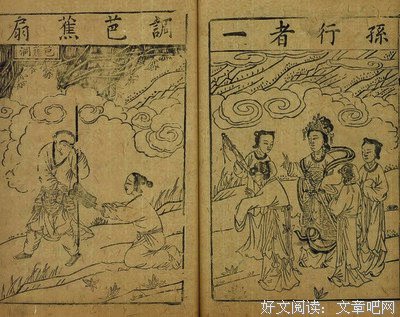 孫行者一
調芭蕉扇
芭蕉洞
好文阅读：文章吧网